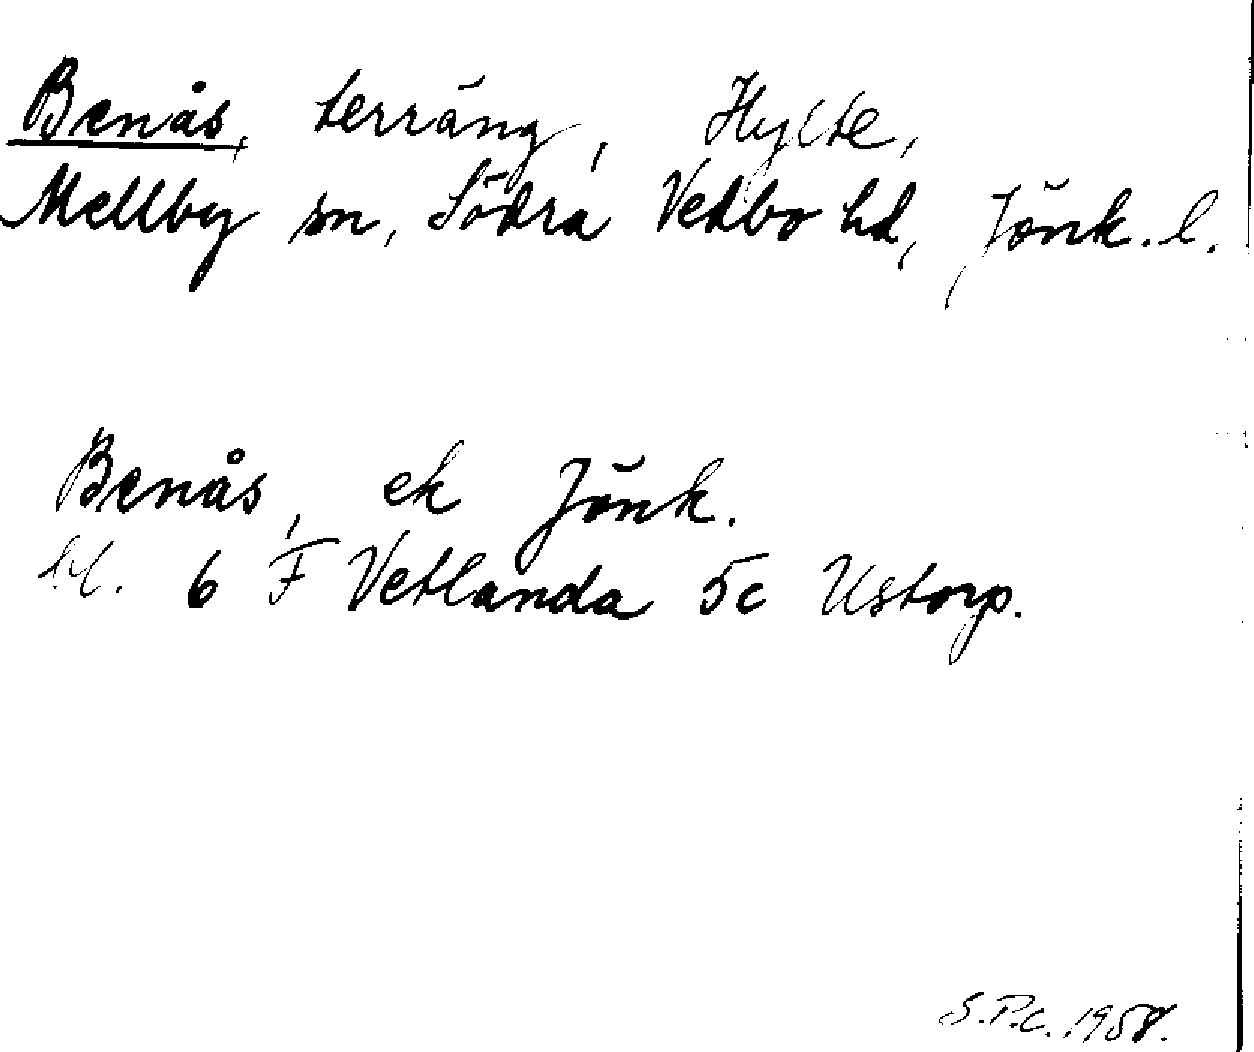 Benås, terräng, Hylte,
Mellby sn, Södra Vedbo hd, Jönk. l.
Benås, ek Jönk.
bl. 6 F Vetlanda 5c Ustorp.
S.P.C. 1958.